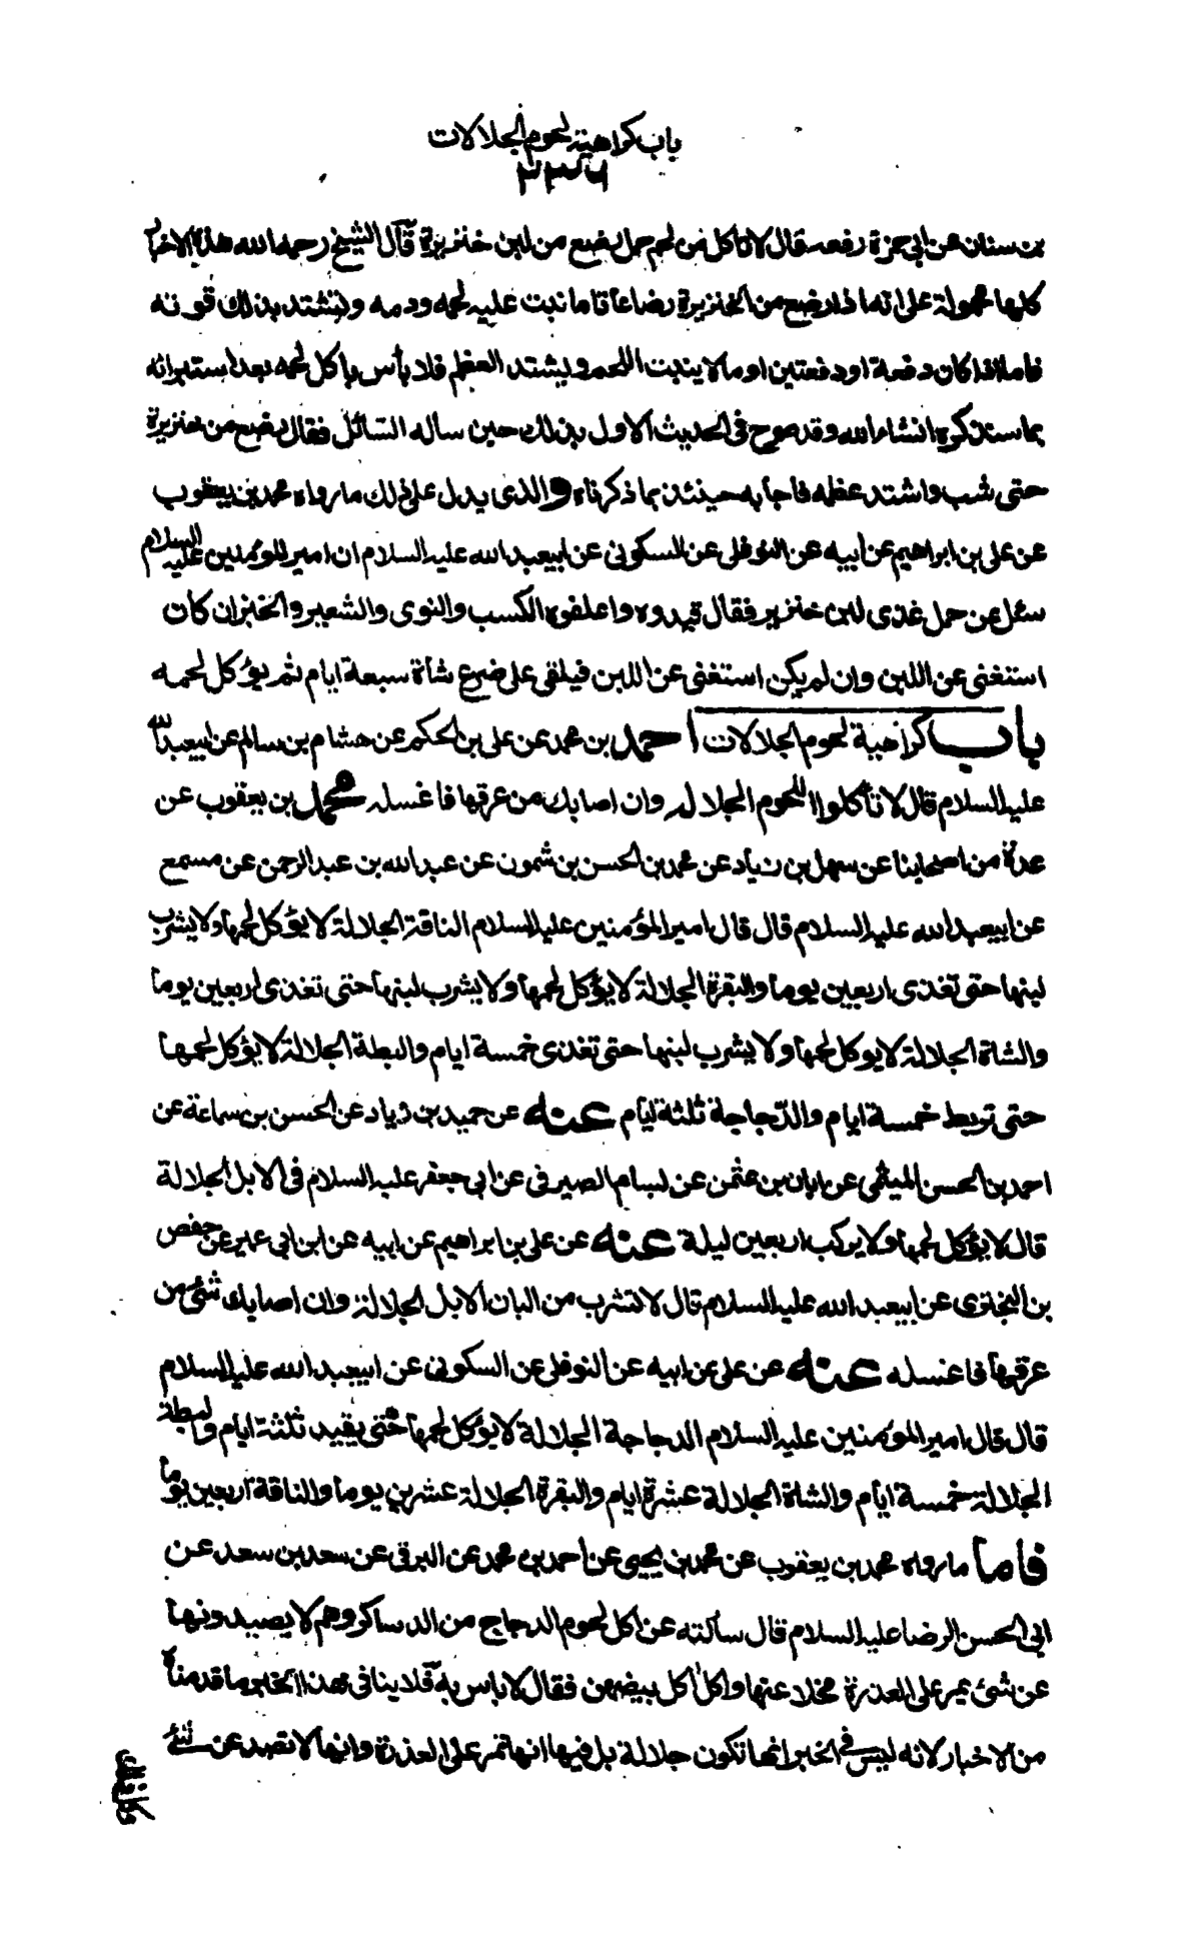 باب كراهية لحوم الجلالات
٢٣٧٦
بن سنان عن ابي حمزة رفعه قال لا تاكل من لحم حمل يرضع من لبن خنزيرة قال الشيخ رحمه الله هذه الاخبار
كلها محمولة على انه اذا رضع من الخنزيرة رضاعا تاما نبت عليه لحمه ودمه وتشتد بذلك قوته
فاما اذا كان دفعة او دفعتين او ما لا ينبت اللحم ويشتد العظم فلا بأس باكل لحمه بعد استبرائه
بما سنذكره انشاء الله وقد صرح في الحديث الاول بذلك حين ساله السائل فقال يرضع من خنزيرة
حتى شب واشتد عظمه فاجابه حينئذ بما ذكرناه والذى يدل على ذلك ما رواه محمد بن يعقوب
عن على بن ابراهيم عن ابيه عن النوفلى عن السكونى عن ابيعبد الله عليه السلام ان امير المؤمنين عليه السلام
سئل عن حمل غذى بلبن خنزير فقال قيدوه واعلفوه الكسب والنوى والشعير والخبز ان كان
استغنى عن اللبن وان لم يكن استغنى عن اللبن فيلقى على ضرع شاة سبعة ايام ثم يؤكل لحمه
باب كراهية لحوم الجلالات احمد بن محمد عن على بن الحكم عن هشام بن سالم عن ابيعبد الله
عليه السلام قال لا تأكلوا اللحوم الجلاله وان اصابك من عرقها فاغسله محمد بن يعقوب عن
عدة من اصحابنا عن سهل بن زياد عن محمد بن الحسن بن شمون عن عبد الله بن عبد الرحمن عن مسمع
عن ابيعبد الله عليه السلام قال قال امير المؤمنين عليه السلام الناقة الجلالة لا يؤكل لحمها ولا يشرب
لبنها حتى تغذى اربعين يوما والبقرة الجلالة لا يؤكل لحمها ولا يشرب لبنها حتى تغذى اربعين يوما
والشاة الجلالة لا يوكل لحمها ولا يشرب لبنها حتى تغذى خمسة ايام والبطة الجلالة لا يؤكل لحمها
حتى تربط خمسة ايام والدجاجة ثلثة ايام عنه عن حميد بن زياد عن الحسن بن سماعة عن
احمد بن الحسن الميثمى عن ابان بن عثمن عن بسام الصيرفى عن ابى جعفر عليه السلام فى الابل الجلالة
قال لا يؤكل لحمها ولا يركب اربعين ليلة عنه عن على بن ابراهيم عن ابيه عن ابن ابى عمير عن حفص
بن البخترى عن ابيعبد الله عليه السلام قال لا تشرب من البان الابل الجلالة وان اصابك شئ من
عرقها فاغسله عنه عن على عن ابيه عن النوفلى عن السكونى عن ابيعبد الله عليه السلام
قال قال امير المؤمنين عليه السلام الدجاجة الجلالة لا يؤكل لحمها حتى يقيد ثلثة ايام والبطة
الجلالة خمسة ايام والشاة الجلالة عشرة ايام والبقرة الجلالة عشرين يوما والناقة اربعين يوما
فاما ما رواه محمد بن يعقوب عن محمد بن يحيى عن احمد بن محمد عن البرقى عن سعد بن سعد عن
ابى الحسن الرضا عليه السلام قال سألته عن اكل لحوم الدجاج من الدساكر وهم لا يصيدونها
عن شئ يمر على العذرة مخلا عنها واكل اكل بيضهن فقال لا باس به فلا ينافى هذا الخبر ما قدمناه
من الاخبار لانه ليس في الخبر انها تكون جلالة بل فيها انها تمر على العذرة وانها لا تصد عن شئ